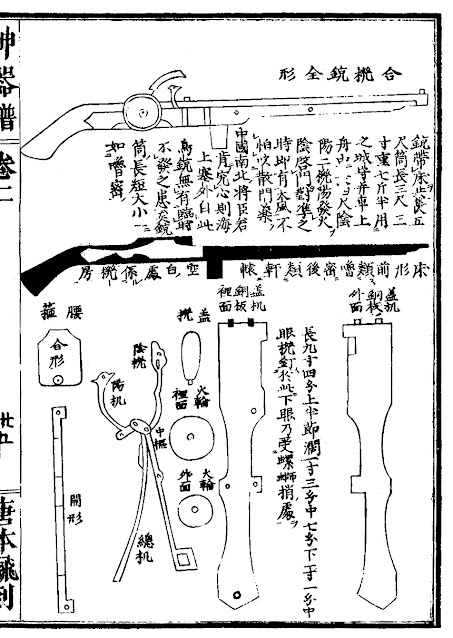 神器譜 卷二
合機銃全形
尺筒長三尺三
寸重七斤半用
之城守并車上
陽二機陽發火
陰啓門對準之
時即有大風不
怕吹散門藥
中國南北將臣若
肯究心則海
上塞外自此
鳥銃無有臨時
不發之患矣銃
筒長短大小
如嚕密
床形前類嚕密後類軒轅
空白處係機房
蓋机銅板外面
蓋机銅板裡面
長九寸四分上半節濶一寸三分中七分下一寸一分中
眼機釘於此下眼乃受螺螄捎處
蓋機
火輪裡面
火輪外面
陰機
陽机
中樞
總机
腰箍
合形
開形
廿五